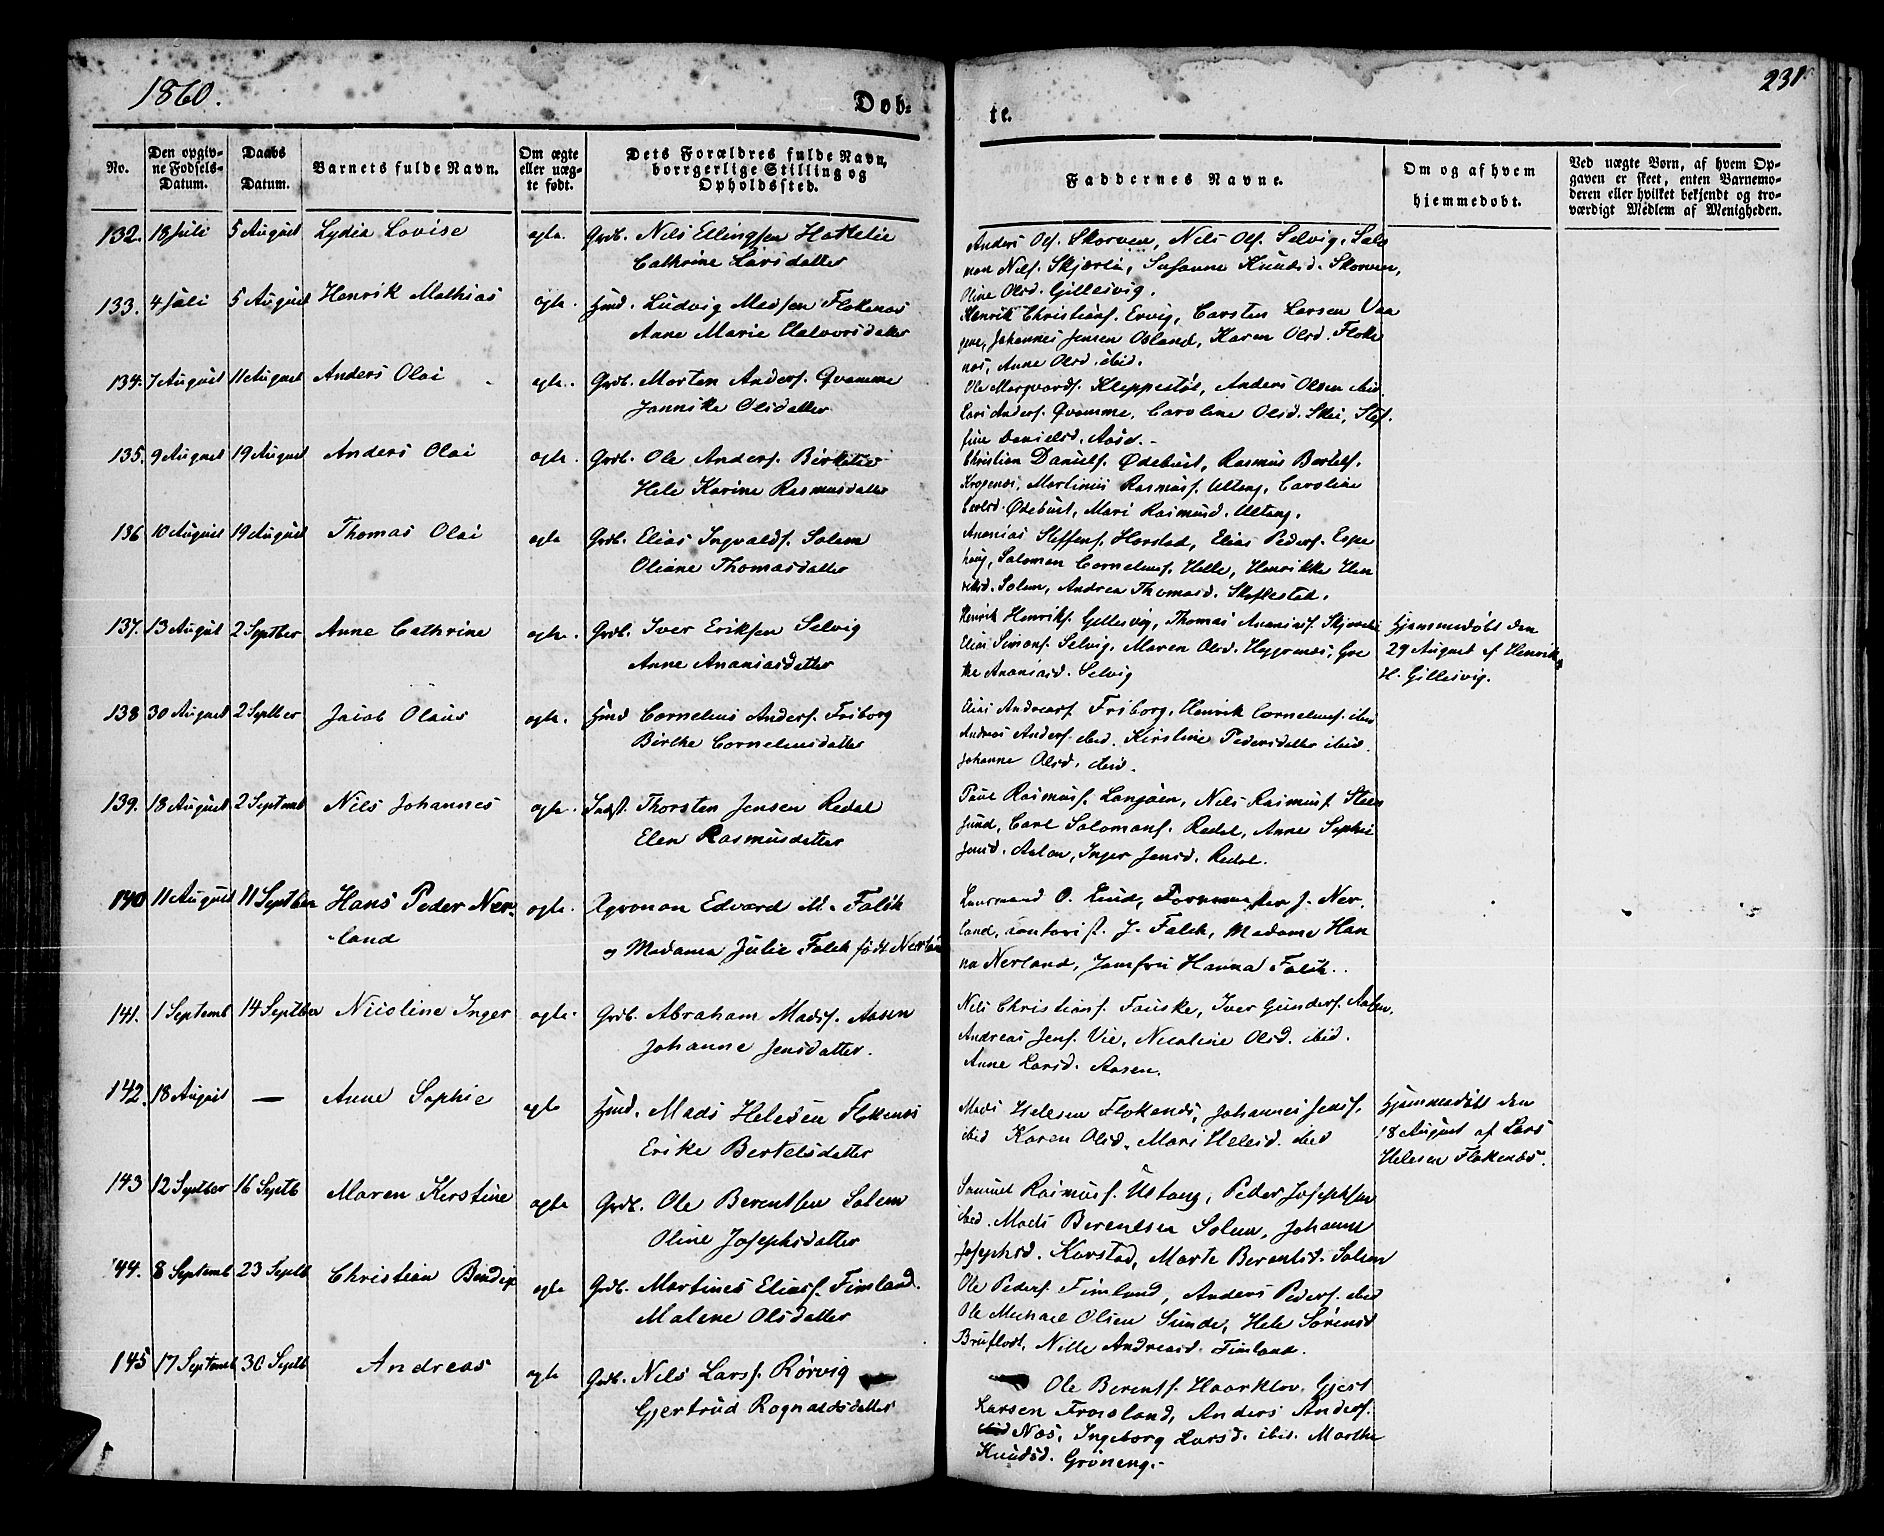 1860.
Døb-
te.
231
No.
Den opgiv-
ne Fødsels-
Datum.
Daabs
Datum.
Barnets fulde Navn.
Om ægte
eller uæg-
te født.
Dets Forældres fulde Navn,
borgerlige Stilling og
Opholdssted.
Faddernes Navne.
Om og af hvem
hjemmedøbt.
Ved uægte Børn, af hvem Op-
gaven er skeet, enten Barnemo-
deren eller hvilket bekjendt og tro-
værdigt Medlem af Menigheden.
132. 18 Juli 5 August Lydia Lovise ægte. Grdb. Nils Ellingsen Hatlelie
Cathrine Larsdatter
Anders Ols. Skorven, Nils Ols. Selvig, Salo
mon Nils. Skjerlie, Susanne Knudsd. Skorven,
Oline Olsd. Gillesvig.
133. 4 Juli 5 August Henrik Mathias ægte. Hmd. Ludvig Madsen Flokenæs
Anne Marie Halvorsdatter
Henrik Christians. Ervig, Carsten Larsen Vaa
gene, Johannes Jensen Osland, Karen Olsd. Floke
næs, Anne Olsd. ibid.
134. 7 August 11 August Anders Olai ægte. Grdb. Morten Anders. Qvamme
Jannike Olsdatter
Ole Margvards. Kleppestøl, Anders Olsen ibid
Lars Anders. Qvamme, Caroline Olsd. Skei, Stef-
fine Danielsd. Aase.
135. 9 August 19 August Anders Olai ægte. Grdb. Ole Anders. Birkelie
Hele Karine Rasmusdatter
Christien Daniels. Ødebuit, Rasmus Bertels.
Krogenæs, Martinus Rasmus. Ultang, Caroline
Ødebuit, Mari Rasmusd. Ultang.
136 10 August 19 August Thomas Olai ægte Grdb. Elias Ingvalds. Solem
Oliane Thomasdatter
Ananias Steffens. Horstad, Elias Peders. Espe
haug, Salomon Cornelius. Helle, Henrikke Hen
riksd. Solem, Andrea Thomasd. Skaflestad.
137. 13 August 2 Septber Anne Cathrine ægte. Grdb. Iver Eriksen Selvig
Anne Ananiasdatter
Henrik Henriks. Gillesvig, Thomas Ananias. Skjerlie
Elias Simons. Selvig, Maren Olsd. Hygrenæs, Gre
the Ananiasd. Selvig
Hjemmedøbt den
29 August af Henrik
H. Gillesvig.
138 30 August 2 Septber Jacob Olaus ægte. Hmd Cornelius Anders. Friborg
Birthe Corneliusdatter
Elias Andreas. Friborg, Henrik Cornelius. ibid
Andreas Anders. ibid. Kirstine Pedersdatter ibid.
Johanne Olsd. ibid.
139. 18 August 2 Septemb Nils Johannes ægte. Indst. Thorsten Jensen Redal
Elen Rasmusdatter
Paul Rasmus. Langøen, Nils Rasmus. Steen
sund, Carl Salomons. Redal, Anne Sophie
Jensd. Aalon, Inger Jensd. Redal.
140 11 August 11 Septber Hans Peder Ner-
-land ægte. Agronon Edvard M. Falck
og Madamen Julie Falck født Nerland
Lensmand O. Lind, Foermester J. Ner-
land, contorist. J. Falck, Madame Han
na Nerland, Jomfru Hanna Falck.
141. 1 Septemb 14 Septber Nicoline Inger ægte. Grdb. Abraham Mads. Aasen
Johanne Jensdatter.
Nils Christians. Fauske, Iver Gunders. Aasen,
Andreas Jens. Vie, Nicoline Olsd. ibid.
Anne Larsd. Aasen.
142. 18 August — Anne Sophie ægte Hmd. Mads Helesen Flokenes
Erike Bertelsdatter
Mads Helesen Flokenæs, Johannes Jens.
ibid Karen Olsd. Mari Helesd. ibid
Hjemmedøbt den
18 August af Lars
Helesen Flokenæs.
143 12 Septber 16 Septb Maren Kirstine ægte Grdb. Ole Berentsen Solem
Oline Josephsdatter
Samuel Rasmus. Ultang, Peder Josephsen
ibid. Mads Berentsen Solem, Johanne
Josephsd. Korstad, Marte Berentsd. Solem
144. 8 Septemb 23 Septb Christian Bendix ægte Grdb. Martines Elias. Fimland.
Malene Olsdatter
Ole Peders. Fimland, Anders Peders. ibid
Ole Michael Olsen Sunde, Hele Sørensd
Bruflodt, Nille Andreasd. Fimland.
145 17 Septemb 30 Septb Andreas ægte Grdb. Nils Larss. Rørvig
Gjertrud Ragnaldsdatter
Ole Berents. Haarklov, Gjest
Larsen Frøisland, Anders Anders.
ibid Næs, Ingeborg Larsd. ibid. Marthe
Knudsd. Grøneng.